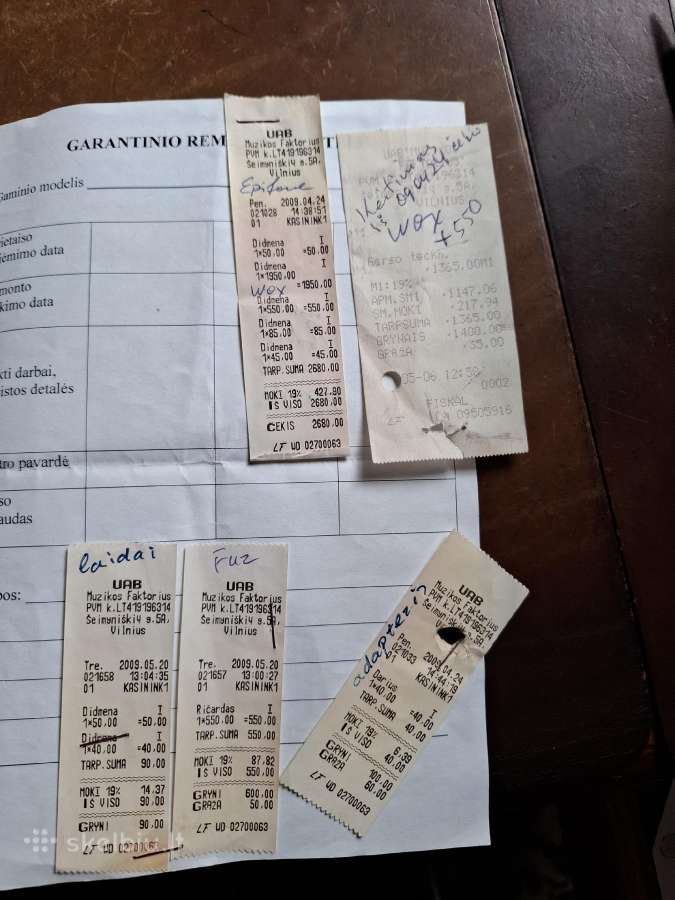 GARANTINIO REM
Gaminio modelis
ietaiso
ėmimo data
monto
kimo data
kti darbai,
istos detalės
tro pavardė
so
audas
pos:
UAB
Muzikos Faktorius
PVM k.LT419196314
Šeimyniškių g.5A,
Vilnius
Epifone
Pen. 2009.04.24
021028 14:38:51
01 KASININK1
Didmena I
1×50.00 =50.00
Didmena I
1×1950.00
wox =1950.00
Didmena I
1×550.00 =550.00
Didmena I
1×85.00 =85.00
Didmena I
1×45.00 =45.00
TARP.SUMA 2680.00
MOKI 19% 427.90
IŠ VISO 2680.00
ČEKIS 2680.00
LF UD 02700063
iš 090424
wox
+550
VILNIUS
Garso techn.
·1365.00M1
M1:19%
APM.SM1 ·1147.06
SM.MOK1 ·217.94
TARPSUMA ·1365.00
GRYNAIS ·1400.00
GRĄŽA ·35.00
05-06 12:50
0002
FISKAL
LF 09505916
laidai
UAB
Muzikos Faktorius
PVM k.LT419196314
Šeimyniškių g.5A,
Vilnius
Tre. 2009.05.20
021658 13:04:35
01 KASININK1
Didmena I
1×50.00 =50.00
Didmena I
1×40.00 =40.00
TARP.SUMA 90.00
MOKI 19% 14.37
IŠ VISO 90.00
GRYNI 90.00
LF UD 02700063
Fuz
UAB
Muzikos Faktorius
PVM k.LT419196314
Šeimyniškių g.5A,
Vilnius
Tre. 2009.05.20
021657 13:00:27
01 KASININK1
Ričardas I
1×550.00 =550.00
TARP.SUMA 550.00
MOKI 19% 87.82
IŠ VISO 550.00
GRYNI 600.00
GRĄŽA 50.00
LF UD 02700063
adapteris
UAB
Muzikos Faktorius
PVM k.LT419196314
Šeimyniškių g.5A,
Vilnius
Pen. 2009.04.24
021033 14:44:19
01 KASININK1
Darius I
1×40.00 =40.00
TARP.SUMA 40.00
MOKI 19% 6.39
IŠ VISO 40.00
GRYNI 100.00
GRĄŽA 60.00
LF UD 02700063
skelbiu.lt